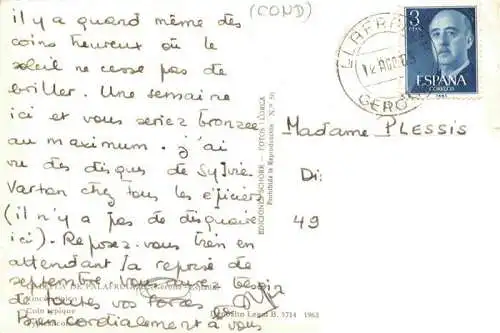 (COND)
il y a quand même des
coins heureux où le
soleil ne cesse pas de
briller. Une semaine
ici et vous seriez bronzée
au maximum. j'ai
vu des disques de Sylvie
Vartan chez tous les épiciers
(il n'y a pas de disquaire
ici). Reposez-vous bien en
attendant la reprise de
septembre vous aurez besoin
de toutes vos forces
Bien cordialement à vous
LLAFRA
12 AGO
GERON
3
PTAS
ESPAÑA
CORREOS
Madame PLESSIS
Di:
49
EDICIONES SCHORR - FOTOS LLORCA
Prohibida la Reproducción N.º 50
DE PALAFRUGELL
Coin typique
Depósito Legal B. 5714 1963